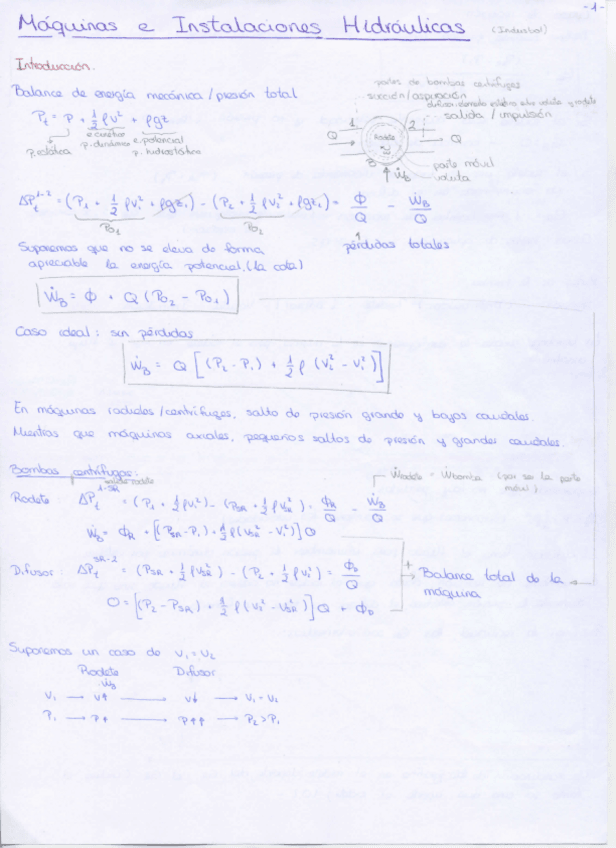 -1-
Máquinas e Instalaciones Hidráulicas (Industrial)
Introducción.
Balance de energía mecánica / presión total
Pt = P + 1/2 ρv² + ρgz
e. cinética e. potencial
p. estática p. dinámica p. hidrostática
partes de bombas centrífugas
succión / aspiración
difusor: elemento estático entre voluta y rodete
salida / impulsión
1 2
Q Rodete Q
ẆB
parte móvil
voluta
ΔPt¹⁻² = (P₁ + 1/2 ρv₁² + ρgz₁) - (P₂ + 1/2 ρv₂² + ρgz₂) = Φ/Q - ẆB/Q
P₀₁ P₀₂
pérdidas totales
Suponemos que no se eleva de forma
apreciable la energía potencial. (la cota)
ẆB = Φ + Q (P₀₂ - P₀₁)
Caso ideal: sin pérdidas
ẆB = Q [(P₂ - P₁) + 1/2 ρ (v₂² - v₁²)]
En máquinas radiales/centrífugas, salto de presión grande y bajos caudales.
Mientras que máquinas axiales, pequeños saltos de presión y grandes caudales.
Bombas centrífugas:
salida rodete
Ẇrodete = Ẇbomba (por ser la parte
móvil)
Rodete: ΔPt¹⁻ˢᴿ = (P₁ + 1/2 ρv₁²) - (PSR + 1/2 ρvSR²) = ΦR/Q - ẆB/Q
ẆB = ΦR + [(PSR - P₁) + 1/2 ρ (vSR² - v₁²)] Q
Difusor: ΔPtˢᴿ⁻² = (PSR + 1/2 ρvSR²) - (P₂ + 1/2 ρv₂²) = ΦD/Q
0 = [(P₂ - PSR) + 1/2 ρ (v₂² - vSR²)] Q + ΦD
+
Balance total de la
máquina
Suponemos un caso de v₁ = v₂
Rodete Difusor
ẆB
v₁ → v↑ → v↓ → v₁ = v₂
P₁ → P↑ → P↑↑ → P₂ > P₁